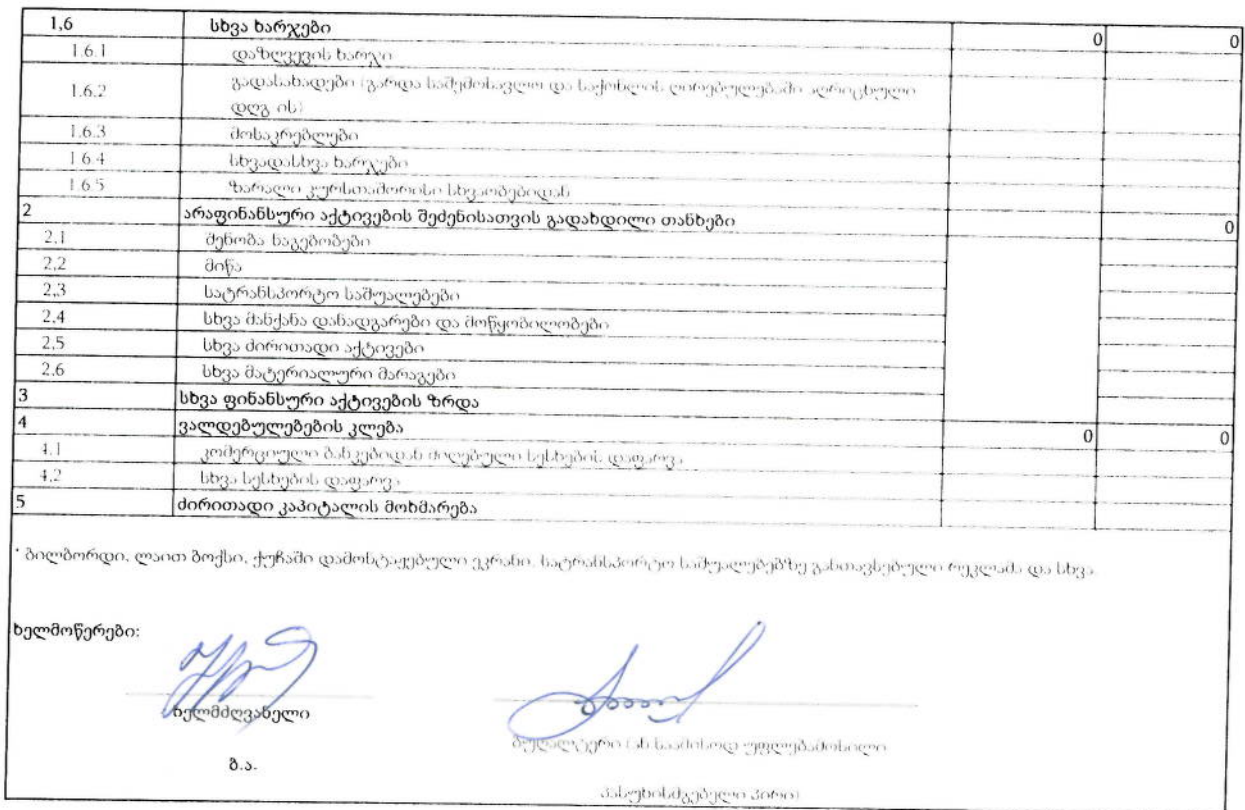 1,6 სხვა ხარჯები 0 0
1.6.1 დაზღვევის ხარჯი
1.6.2 გადასახადები (გარდა საშემოსავლო და საქონლის ღირებულებაში აღრიცხული
დღგ ის)
1.6.3 მოსაკრებლები
1.6.4 სხვადასხვა ხარჯები
1.6.5 ზარალი კურსთაშორისი სხვაობებიდან
2 არაფინანსური აქტივების შეძენისათვის გადახდილი თანხები 0
2.1 შენობა ნაგებობები
2,2 მიწა
2,3 სატრანსპორტო საშუალებები
2.4 სხვა მანქანა დანადგარები და მოწყობილობები
2.5 სხვა ძირითადი აქტივები
2.6 სხვა მატერიალური მარაგები
3 სხვა ფინანსური აქტივების ზრდა
4 ვალდებულებების კლება 0 0
4.1 კომერციული ბანკებიდან მიღებული სესხების დაფარვა
4,2 სხვა სესხების დაფარვა
5 ძირითადი კაპიტალის მოხმარება
* ბილბორდი, ლაით ბოქსი, ქუჩაში დამონტაჟებული ეკრანი, სატრანსპორტო საშუალებებზე განთავსებული რეკლამა და სხვა
ხელმოწერები:
ხელმძღვანელი
ბუღალტერი (ან საამისოდ უფლებამოსილი
ბ.ა.
პასუხისმგებელი პირი)